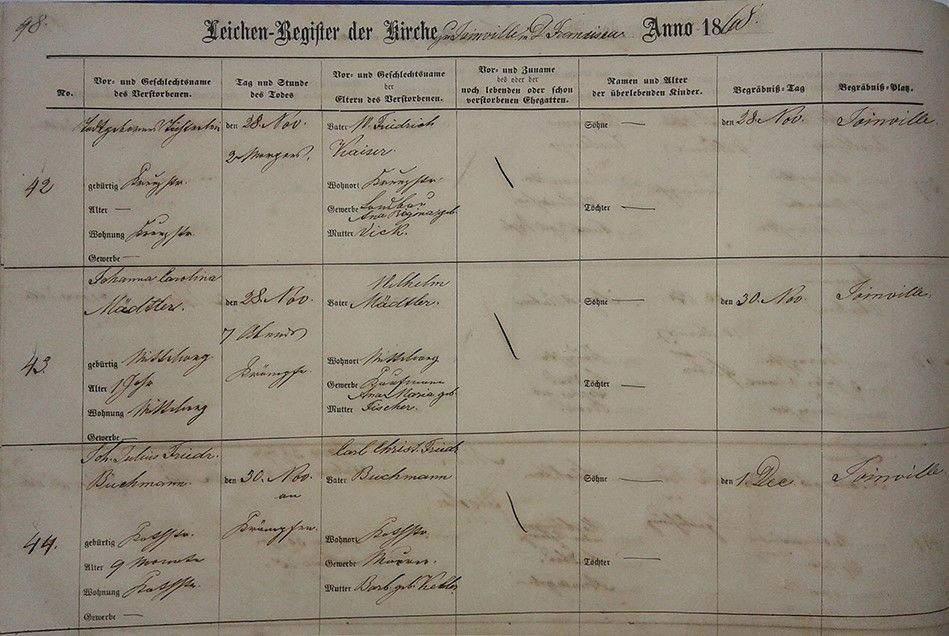 98.
Leichen-Register der Kirche zu Joinville u. D. Francisca Anno 1868.
No.
Vor- und Geschlechtsname
des Verstorbenen.
Tag und Stunde
des Todes
Vor- und Geschlechtsname
der
Eltern des Verstorbenen.
Vor- und Zuname
des oder der
noch lebenden oder schon
verstorbenen Ehegatten.
Namen und Alter
der überlebenden Kinder.
Begräbniß-Tag
Begräbniß-Platz.
42
Todtgeborenes
gebürtig
Alter —
Wohnung
Gewerbe —
den 28 Nov.
2 Morgens.
Vater W. Friedrich
Kaiser.
Wohnort
Gewerbe
Ana Regina geb
Mutter Vick.
Söhne —
Töchter —
den 28 Nov.
Joinville
43
Johanna Carolina
Mädtler.
gebürtig Mittelweg
Alter 1 Jahr
Wohnung Mittelweg
Gewerbe —
den 28 Nov.
7 Abends
Krämpfe.
Wilhelm
Vater Mädtler.
Wohnort Mittelweg
Gewerbe Kaufmann
Ana Maria geb.
Mutter Fischer.
Söhne —
Töchter —
den 30 Nov.
Joinville.
44.
Joh. Julius Friedr.
Buchmann.
gebürtig
Alter 9 Monate
Wohnung
Gewerbe —
den 30. Nov.
an
Krämpfen.
Carl Christ. Friedr
Vater Buchmann
Wohnort
Gewerbe Maurer.
Mutter Barb. geb.
Söhne —
Töchter —
den 1 Dec.
Joinville